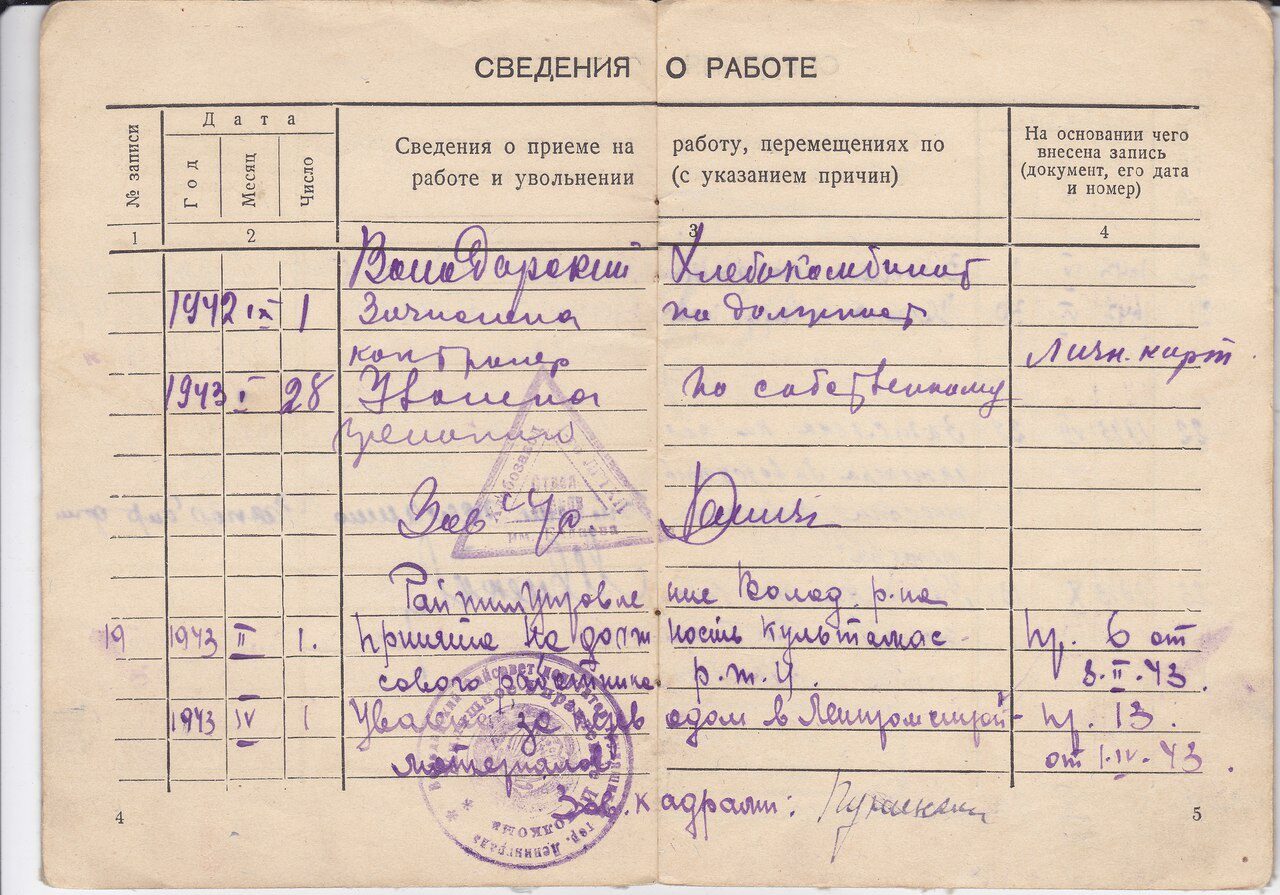 СВЕДЕНИЯ О РАБОТЕ
№ записи
Дата
Год
Месяц
Число
Сведения о приеме на работу, перемещениях по
работе и увольнении (с указанием причин)
На основании чего
внесена запись
(документ, его дата
и номер)
1 2 3 4
Володарский Хлебокомбинат
1942 IX 1 Зачислена на должност
контролер
Личн. карт.
1943 I 28 Уволена по собственному
желанию
Зав
Райжилуправление Волод. р-на
19 1943 II 1. Принята на должность культмас-
Пр. 6 от
сового работника р.ж.у.
3.II.43.
1943 IV 1 Уволена за переводом в Ленпромстрой-
Пр. 13.
материалов
от 1.IV.43.
Зав. кадрами:
гор. Ленинграда
4
5